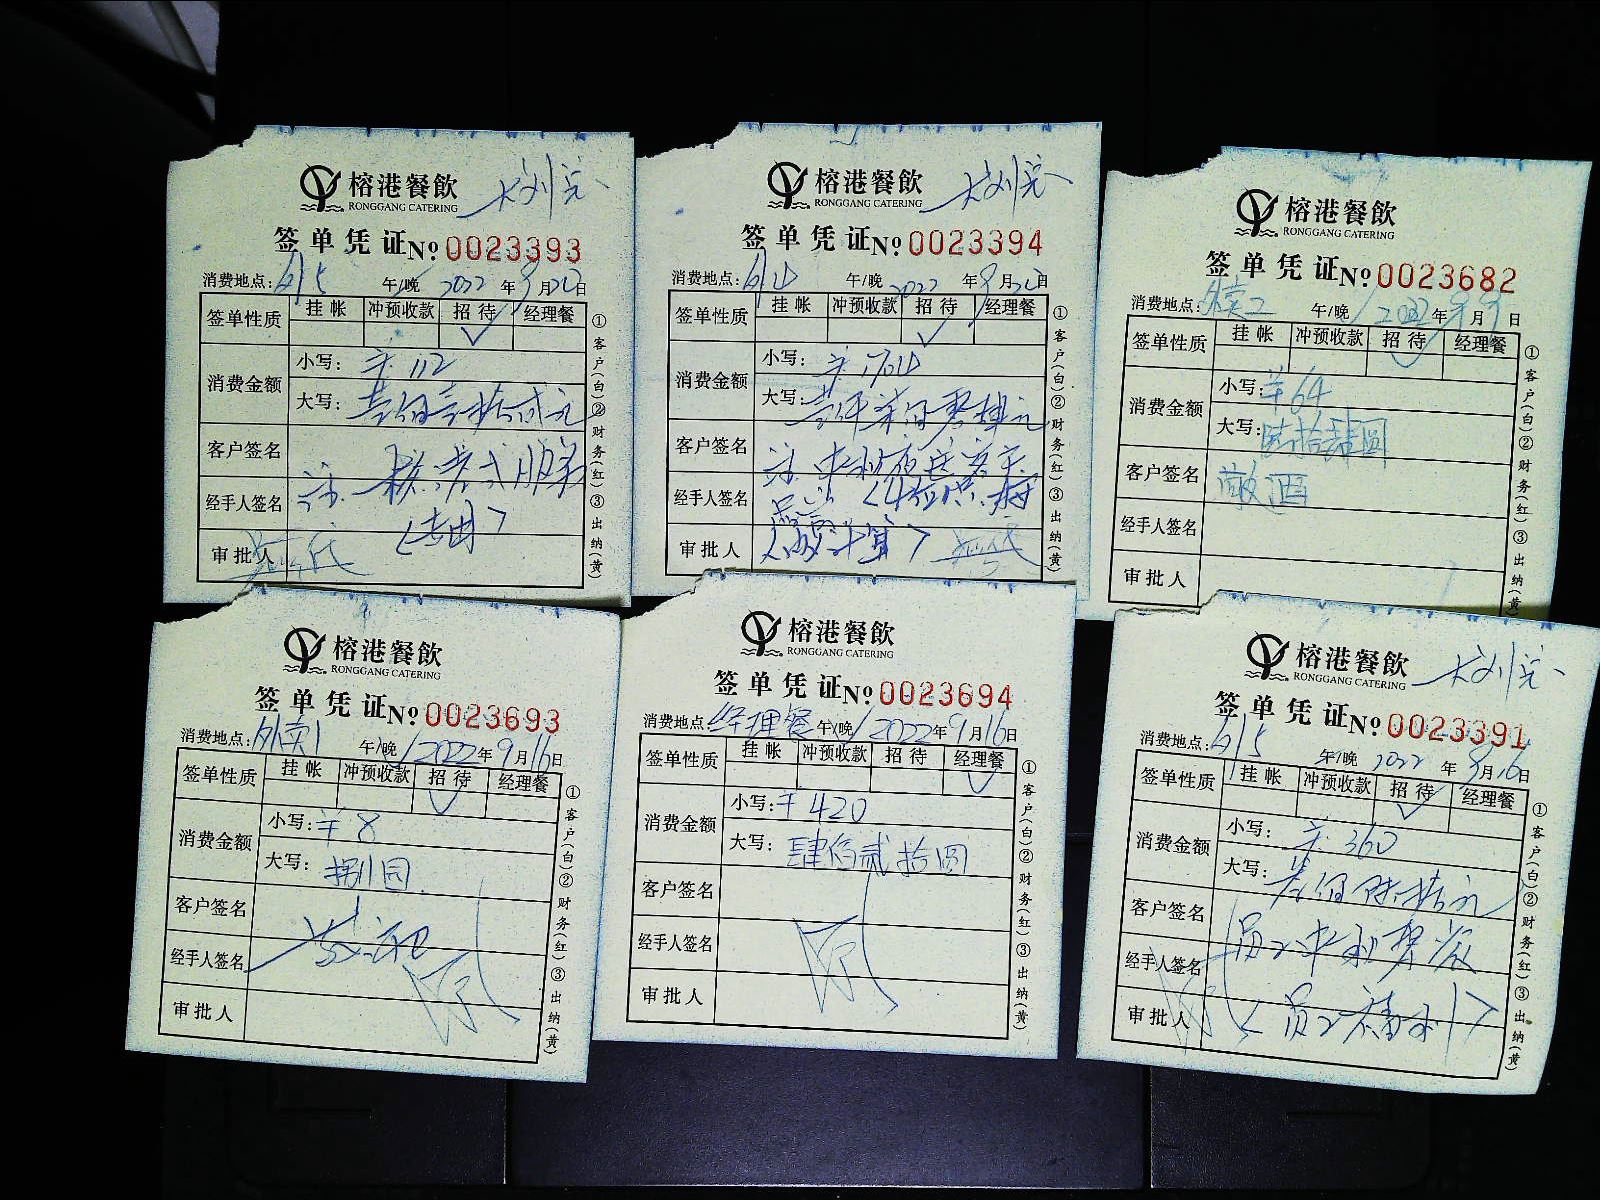 榕港餐飲
RONGGANG CATERING
签单凭证 №0023393
消费地点: 午/晚 2022年9月20日
签单性质 挂帐 冲预收款 招待 经理餐
消费金额 小写: 羊112
大写: 壹佰壹拾贰元
客户签名
经手人签名
审批人
①客户(白)②财务(红)③出纳(黄)
榕港餐飲
RONGGANG CATERING
签单凭证 №0023394
消费地点: 午/晚 2022年9月20日
签单性质 挂帐 冲预收款 招待 经理餐
消费金额 小写:
大写:
客户签名
经手人签名
审批人
①客户(白)②财务(红)③出纳(黄)
榕港餐飲
RONGGANG CATERING
签单凭证 №0023682
消费地点: 外卖2 午/晚 2022年9月9日
签单性质 挂帐 冲预收款 招待 经理餐
消费金额 小写: 羊64
大写: 陆拾肆圆
客户签名
经手人签名
审批人
①客户(白)②财务(红)③出纳(黄)
榕港餐飲
RONGGANG CATERING
签单凭证 №0023693
消费地点: 外卖1 午/晚 2022年9月16日
签单性质 挂帐 冲预收款 招待 经理餐
消费金额 小写: 羊8
大写: 捌圆
客户签名
经手人签名
审批人
①客户(白)②财务(红)③出纳(黄)
榕港餐飲
RONGGANG CATERING
签单凭证 №0023694
消费地点: 经理餐 午/晚 2022年9月16日
签单性质 挂帐 冲预收款 招待 经理餐
消费金额 小写: 羊420
大写: 肆佰贰拾圆
客户签名
经手人签名
审批人
①客户(白)②财务(红)③出纳(黄)
榕港餐飲
RONGGANG CATERING
签单凭证 №0023391
消费地点: 午/晚 2022年9月16日
签单性质 挂帐 冲预收款 招待 经理餐
消费金额 小写: 羊360
大写: 叁佰陆拾元
客户签名
经手人签名
审批人
①客户(白)②财务(红)③出纳(黄)